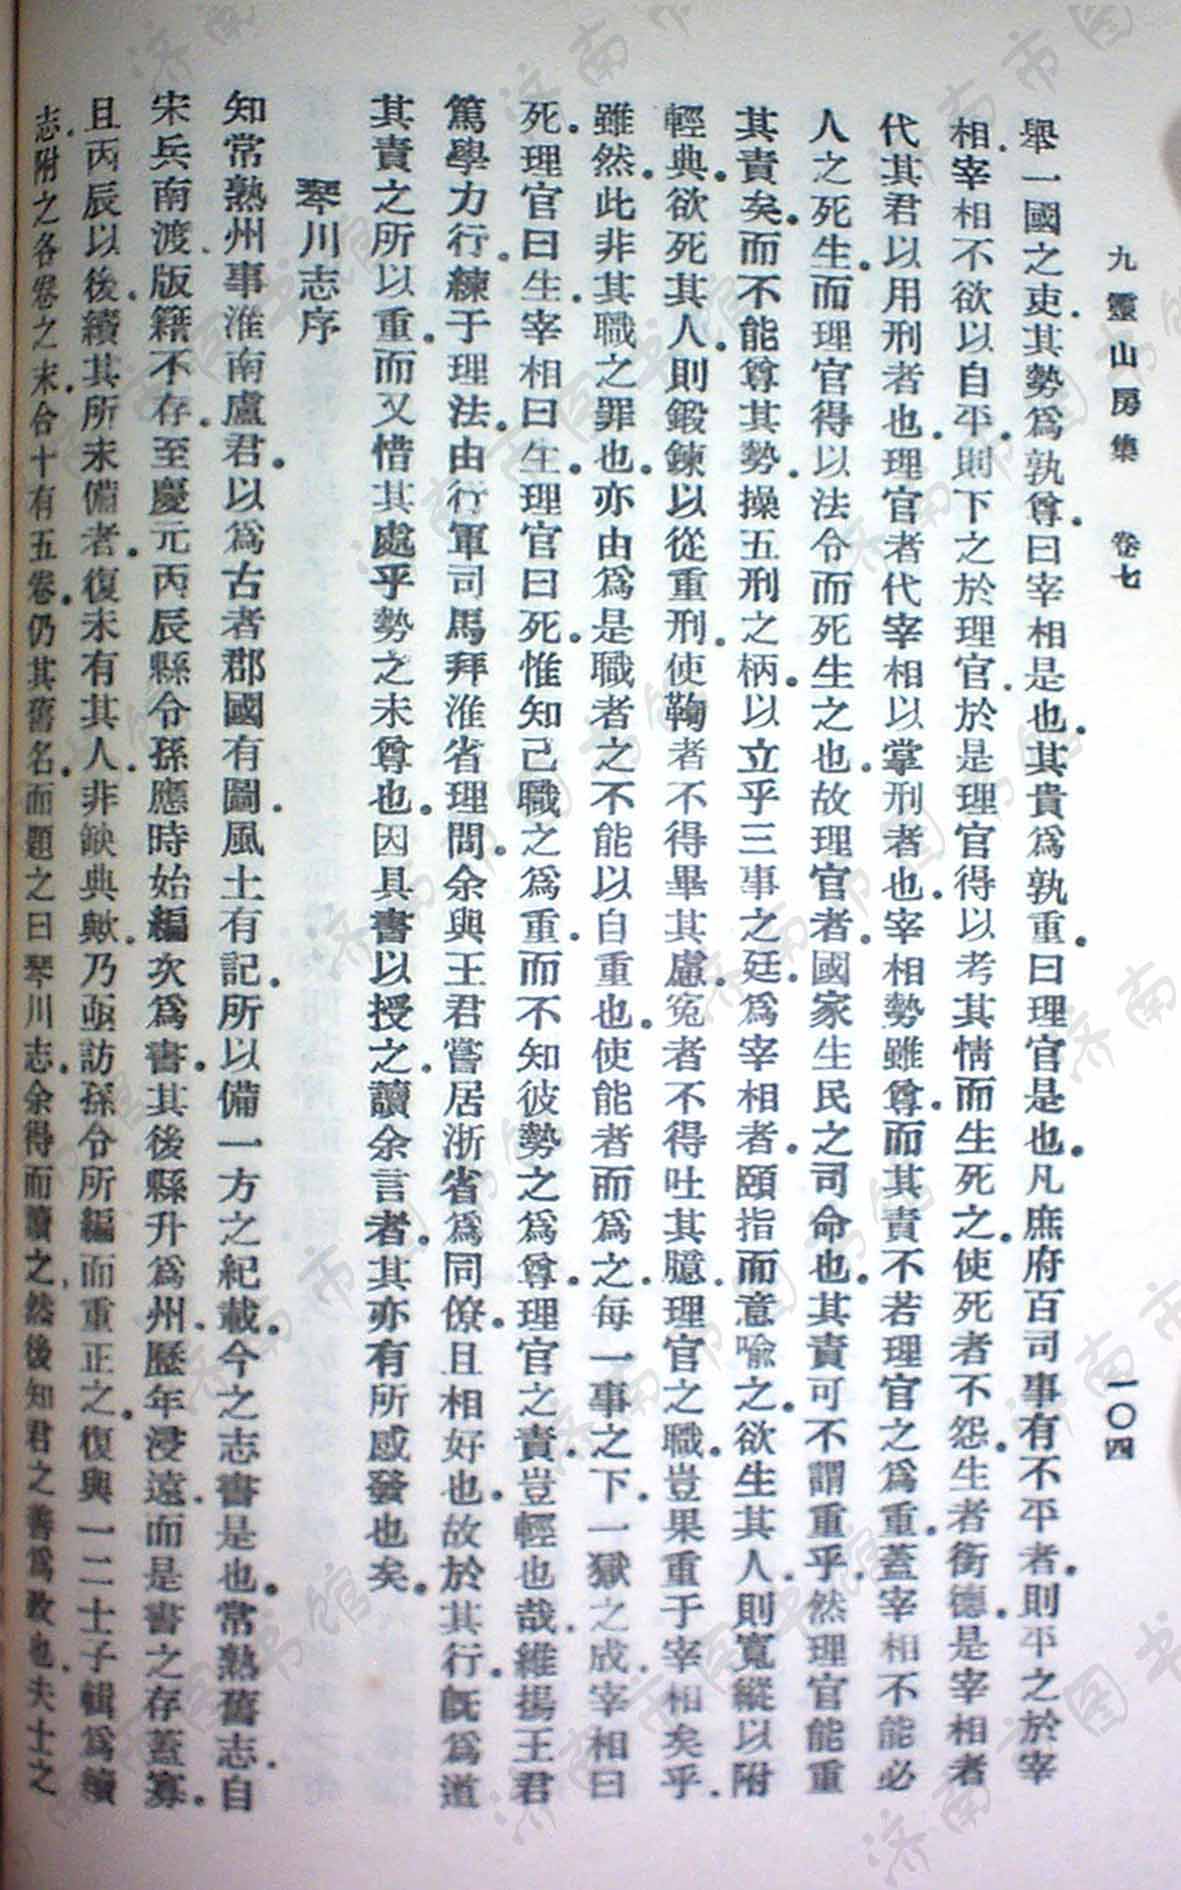 九靈山房集 卷七 一〇四
舉一國之吏。其勢爲孰尊。曰宰相是也。其貴爲孰重。曰理官是也。凡庶府百司事有不平者。則平之於宰
相。宰相不欲以自平。則下之於理官。於是理官得以考其情而生死之。使死者不怨。生者銜德。是宰相者
代其君以用刑者也。理官者代宰相以掌刑者也。宰相勢雖尊。而其責不若理官之爲重。蓋宰相不能必
人之死生。而理官得以法令而死生之也。故理官者。國家生民之司命也。其責可不謂重乎。然理官能重
其責矣。而不能尊其勢。操五刑之柄。以立乎三事之廷。爲宰相者。頤指而意喻之。欲生其人。則寬縱以附
輕典。欲死其人。則鍛鍊以從重刑。使鞠者不得畢其慮。冤者不得吐其臆。理官之職。豈果重于宰相矣乎。
雖然。此非其職之罪也。亦由爲是職者之不能以自重也。使能者而爲之。每一事之下。一獄之成。宰相曰
死。理官曰生。宰相曰生。理官曰死。惟知己職之爲重。而不知彼勢之爲尊。理官之責。豈輕也哉。維揚王君
篤學力行。練于理法。由行軍司馬拜淮省理問。余與王君嘗居浙省爲同僚。且相好也。故於其行。旣爲道
其責之所以重。而又惜其處乎勢之未尊也。因具書以授之。讀余言者。其亦有所感發也矣。
琴川志序
知常熟州事淮南盧君。以爲古者郡國有圖。風土有記。所以備一方之紀載。今之志書是也。常熟舊志。自
宋兵南渡。版籍不存。至慶元丙辰縣令孫應時始編次爲書。其後縣升爲州。歷年浸遠。而是書之存蓋寡。
且丙辰以後。續其所未備者。復未有其人。非缺典歟。乃亟訪孫令所編而重正之。復與一二士子輯爲續
志。附之各卷之末。合十有五卷。仍其舊名。而題之曰琴川志。余得而讀之。然後知君之善爲政也。夫士之